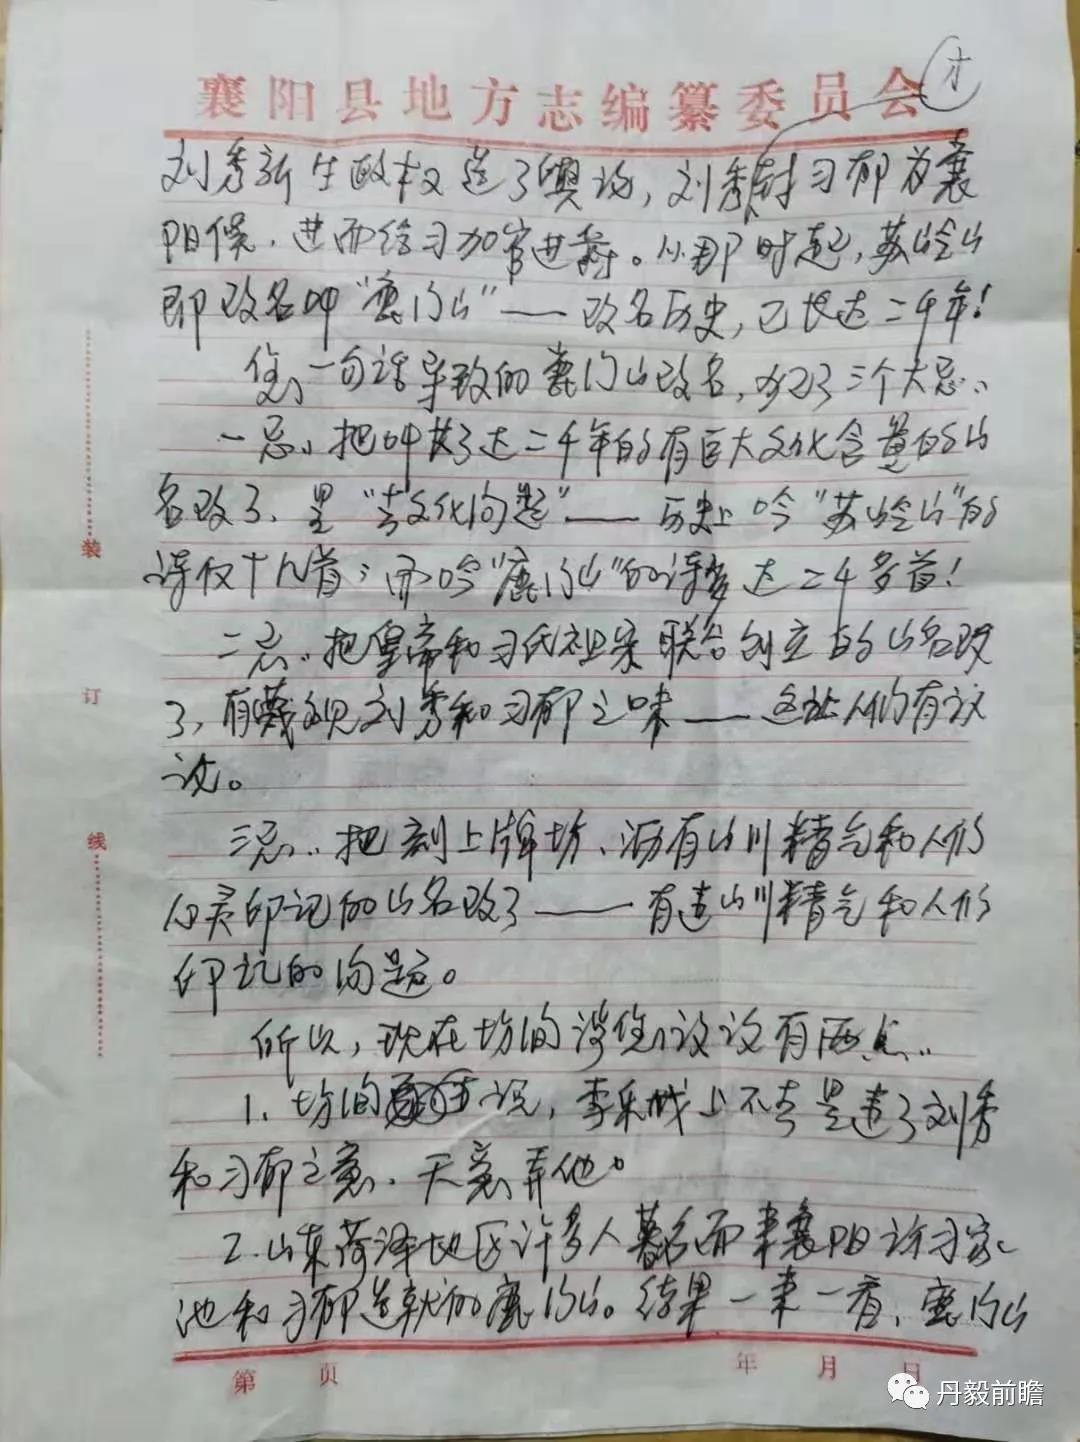 襄阳县地方志编纂委员会
才
刘秀新生政权造了舆论，刘秀封习郁为襄
阳侯，进而给习加官进爵。从那时起，苏岭山
即改名叫“鹿门山”——改名历史，已长达二千年！
您一句话导致的鹿门山改名，犯了三个大忌：
一忌、把叫了达二千年的有巨大文化含量的山
名改了，是“去文化问题”——历史上吟“苏岭山”的
诗仅十几首；而吟“鹿门山”的诗多达二千多首！
二忌、把皇帝和习氏祖宗联合创立的山名改
了，有藐视刘秀和习郁之味——这让人们有议
议。
三忌、把刻上牌坊、沥有山川精气和人们
心灵印记的山名改了——有违山川精气和人们
印记的问题。
所以，现在坊间谈您议论有两点：
1、坊间说，李乐成上不去是违了刘秀
和习郁之意，天意弃他。
2.山东菏泽地区许多人慕名而来襄阳访习家
池和习郁造就的鹿门山。结果一来一看，鹿门山
装
订
线
第 页
年 月 日
丹毅前瞻